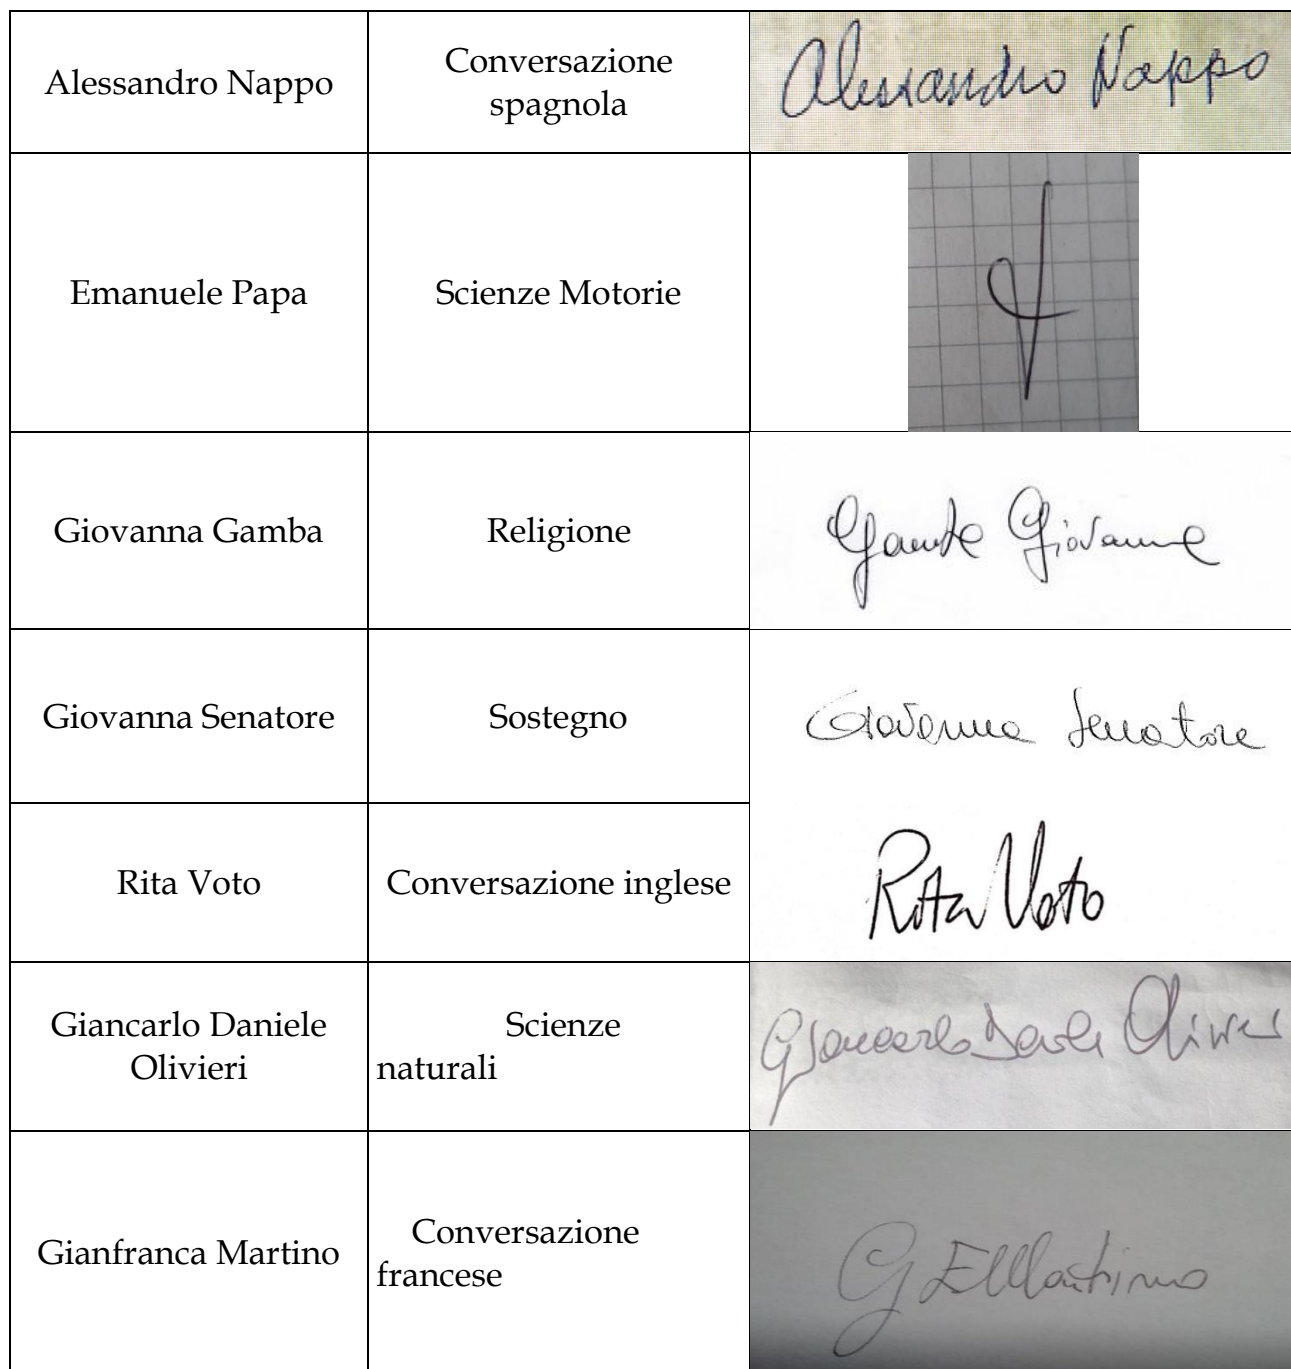 Alessandro Nappo
Conversazione
spagnola
Alessandro Nappo
Emanuele Papa
Scienze Motorie
Giovanna Gamba
Religione
Gamba Giovanna
Giovanna Senatore
Sostegno
Giovanna Senatore
Rita Voto
Conversazione inglese
Rita Voto
Giancarlo Daniele
Olivieri
Scienze
naturali
Giancarlo Daniele Olivieri
Gianfranca Martino
Conversazione
francese
Martino